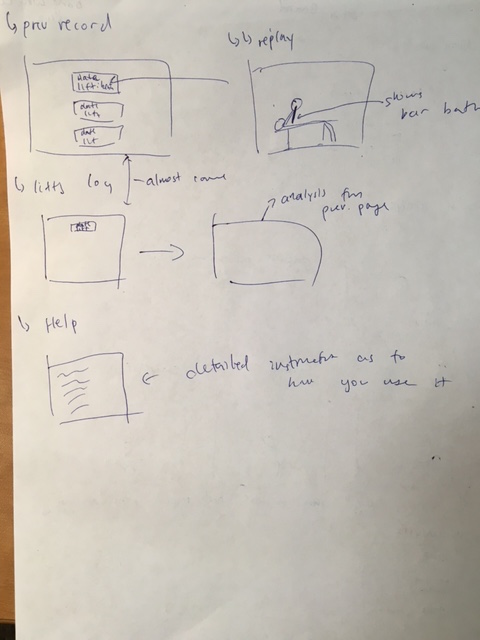 ↳ prev record
↳↳ replay
date
lift
date
lifts
date
lift
shows
bar path
↳ lifts log
almost same
analysis from
prev. page
↳ Help
← detailed instruction as to
how you use it